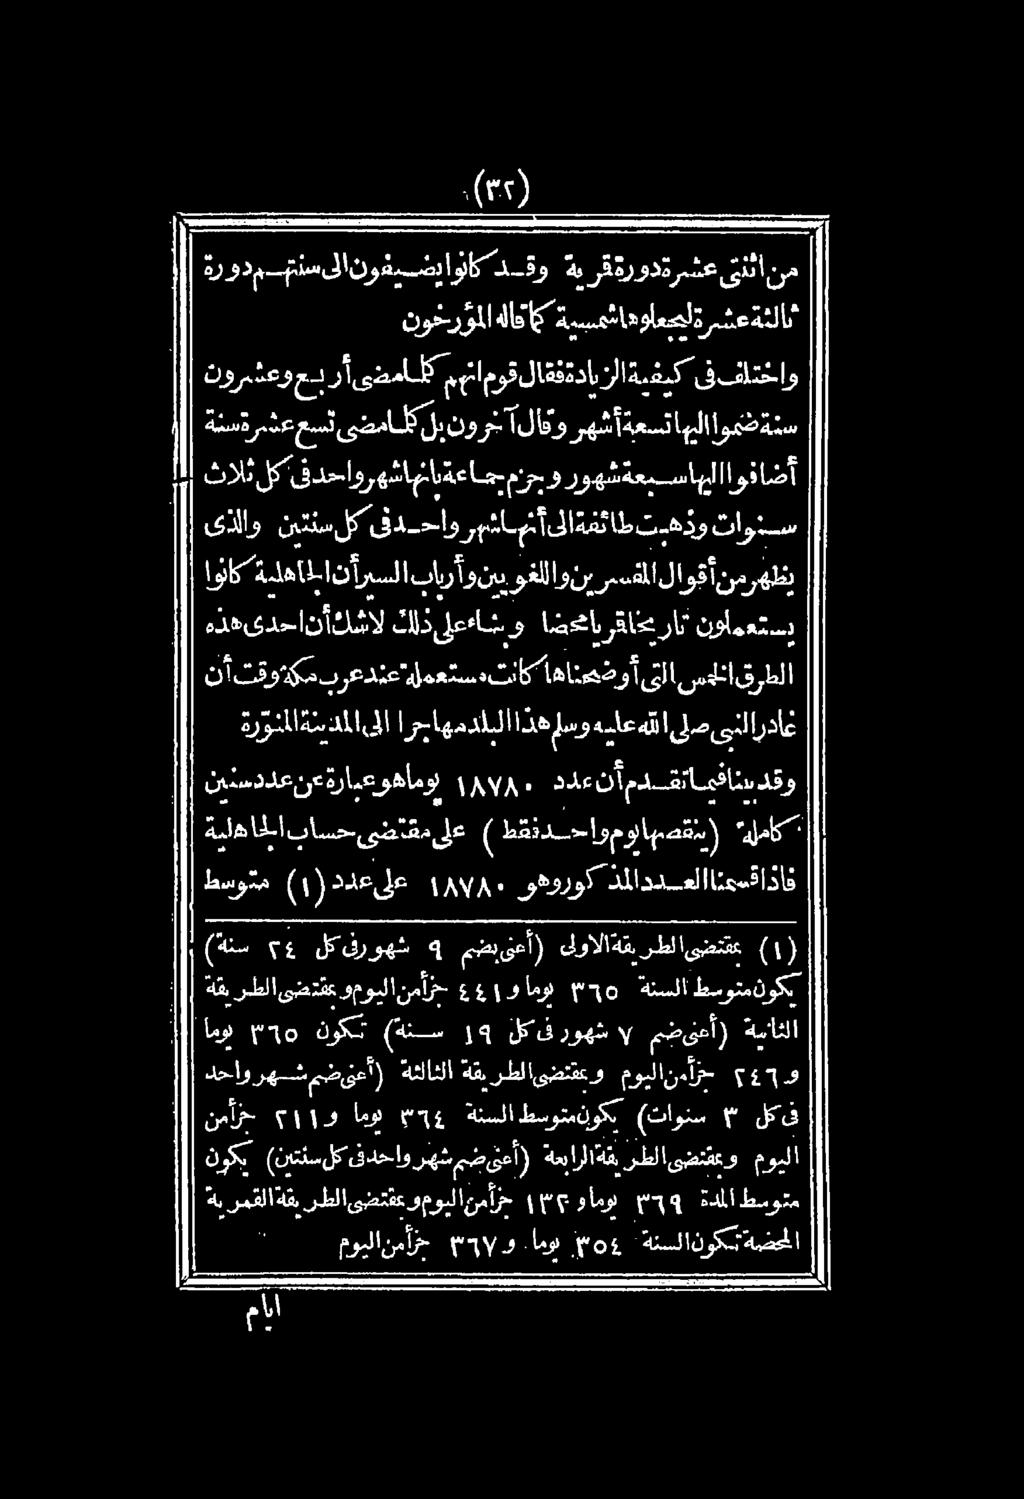 (٣٢)
من اثنتى عشرة دورة قرية وقد كانوا يضيفون الى سنتهم دورة
ثالثة عشرة ليجعلوها شمسية كما قاله المؤرخون
واختلف فى كيفية الزيادة فقال قوم انهم كلما مضى أربع وعشرون
سنة ضموا اليها تسعة أشهر وقال آخرون بل كلما مضى تسع عشرة سنة
أضافوا اليها سبعة شهور وجزم جماعة بانها شهر واحد فى كل ثلاث
سنوات وذهبت طائفة الى أنها شهر واحد فى كل سنتين والذى
يظهر من أقوال المفسرين واللغويين وأرباب السير أن الجاهلية كانوا
يستعملون تاريخا قريا محضا وبناء على ذلك لاشك أن احدى هذه
الطرق الخمس التى أوضحناها كانت مستعملة عند عرب مكة وقت أن
غادر النبى صلى الله عليه وسلم هذا البلد مهاجرا الى المدينة المنورة
وقد بينا فيما تقدم أن عدد ١٨٧٨٠ يوما هو عبارة عن عدد سنين
كاملة (ينقصها يوم واحد فقط) على مقتضى حساب الجاهلية
فاذا قسمنا العدد المذكور وهو ١٨٧٨٠ على عدد (١) متوسط
(١) بمقتضى الطريقة الاولى (أعنى بضم ٩ شهور فى كل ٢٤ سنة)
يكون متوسط السنة ٣٦٥ يوما و ٤٤١ جزأ من اليوم وبمقتضى الطريقة
الثانية (أعنى ضم ٧ شهور فى كل ١٩ سنة) تكون ٣٦٥ يوما
و ٢٤٦ جزأ من اليوم وبمقتضى الطريقة الثالثة (أعنى ضم شهر واحد
فى كل ٣ سنوات) يكون متوسط السنة ٣٦٤ يوما و ٢١١ جزأ من
اليوم وبمقتضى الطريقة الرابعة (أعنى ضم شهر واحد فى كل سنتين) يكون
متوسط المدة ٣٦٩ يوما و ١٣٢ جزأ من اليوم وبمقتضى الطريقة القمرية
المحضة تكون السنة ٣٥٤ يوما و ٣٦٧ جزأ من اليوم
ايام